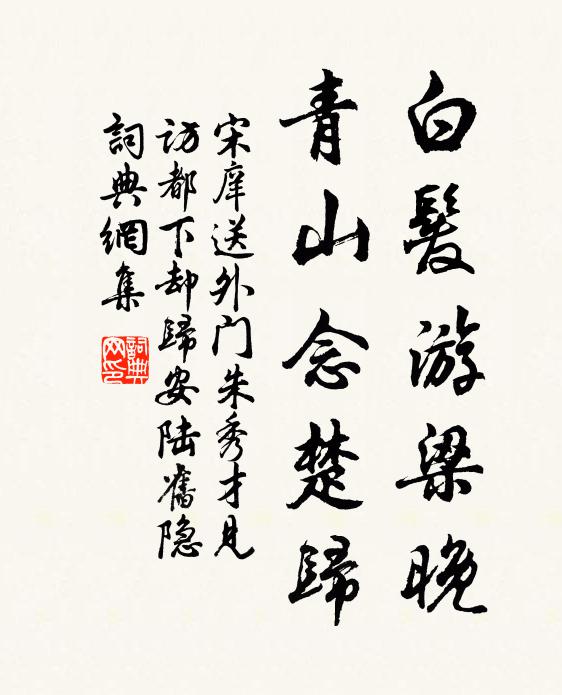 白髮游梁晚
青山念楚歸
宋庠送外门朱秀才見
訪都下却歸安陆舊隐
詞典網集
詞典网印